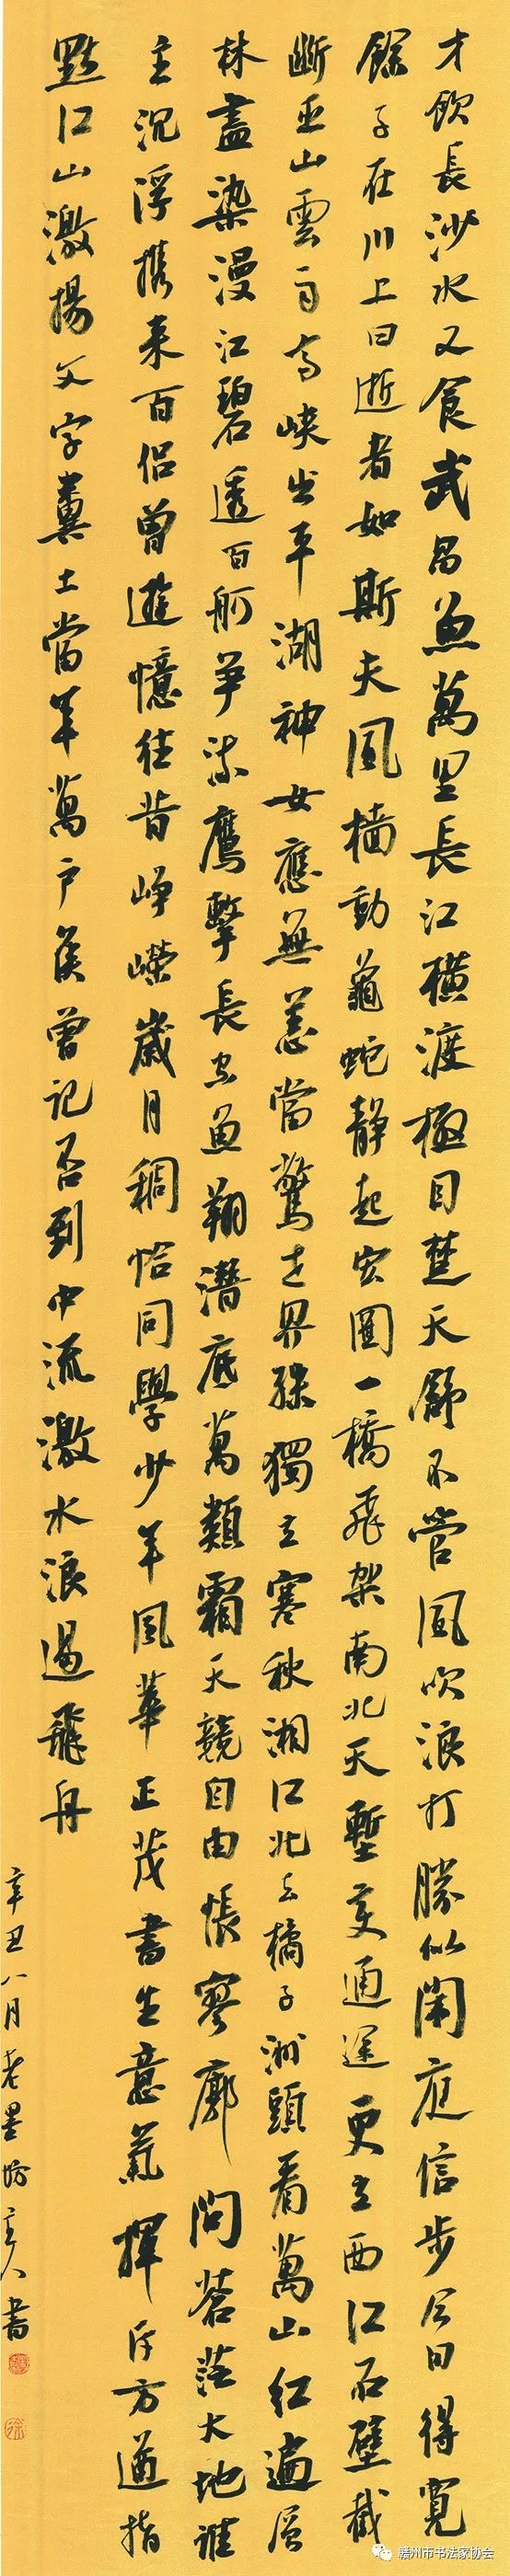 才飲長沙水又食武昌魚萬里長江橫渡極目楚天舒不管風吹浪打勝似閑庭信步今日得寬
餘子在川上曰逝者如斯夫風檣動龜蛇靜起宏圖一橋飛架南北天塹變通途更立西江石壁截
斷巫山雲雨高峽出平湖神女應無恙當驚世界殊獨立寒秋湘江北去橘子洲頭看萬山紅遍層
林盡染漫江碧透百舸爭流鷹擊長空魚翔潛底萬類霜天競自由悵寥廓問蒼茫大地誰
主沉浮攜來百侶曾遊憶往昔崢嶸歲月稠恰同學少年風華正茂書生意氣揮斥方遒指
點江山激揚文字糞土當年萬戶侯曾記否到中流激水浪遏飛舟
辛丑八月老墨坊主人書
赣州市书法家协会